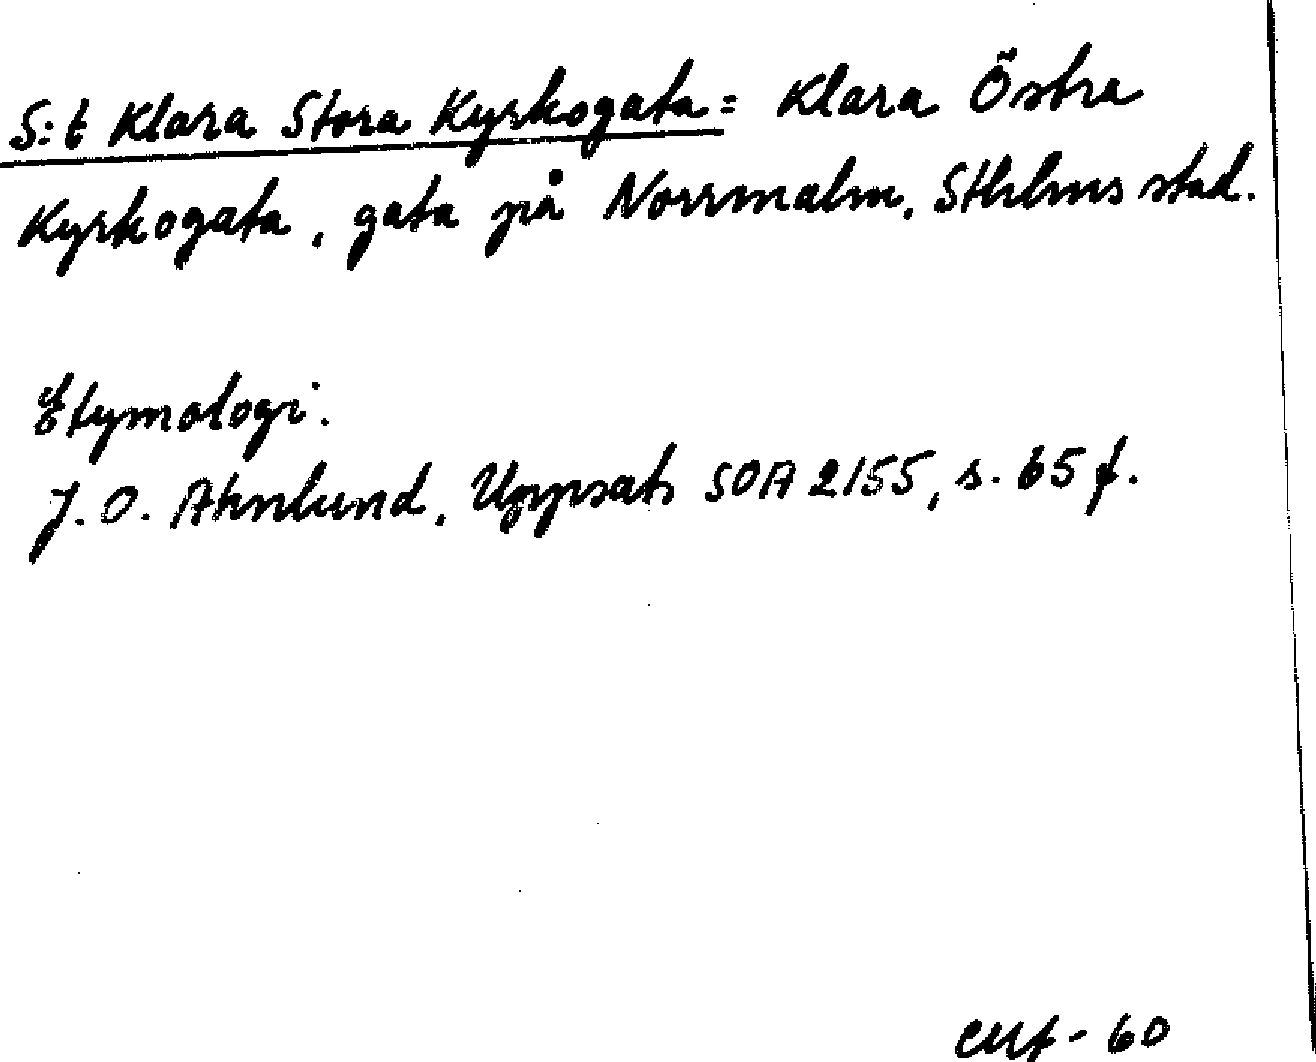 S:t Klara Stora Kyrkogata = Klara Östra
Kyrkogata, gata på Norrmalm, Sthlms stad.
Etymologi.
J. O. Ahnlund, Uppsats SOA 2155, s. 65 f.
- 60